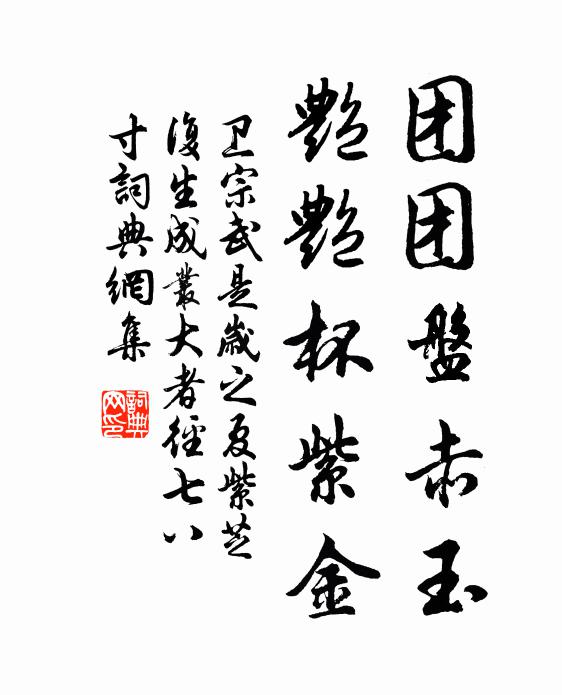 团团盤赤玉
艷艷杯紫金
卫宗武是歲之夏紫芝
復生成叢大者徑七八
寸詞典網集
詞典
网印